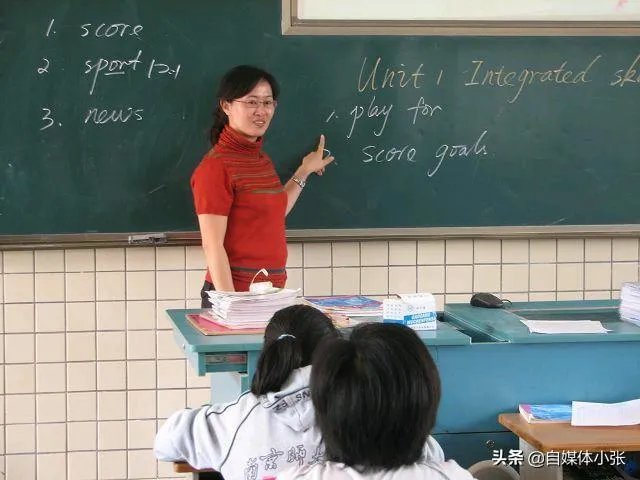 1. score
2. sport
3. news
Unit 1 Integrated
1. play for
2. score goals
南京师
头条 @自媒体小张